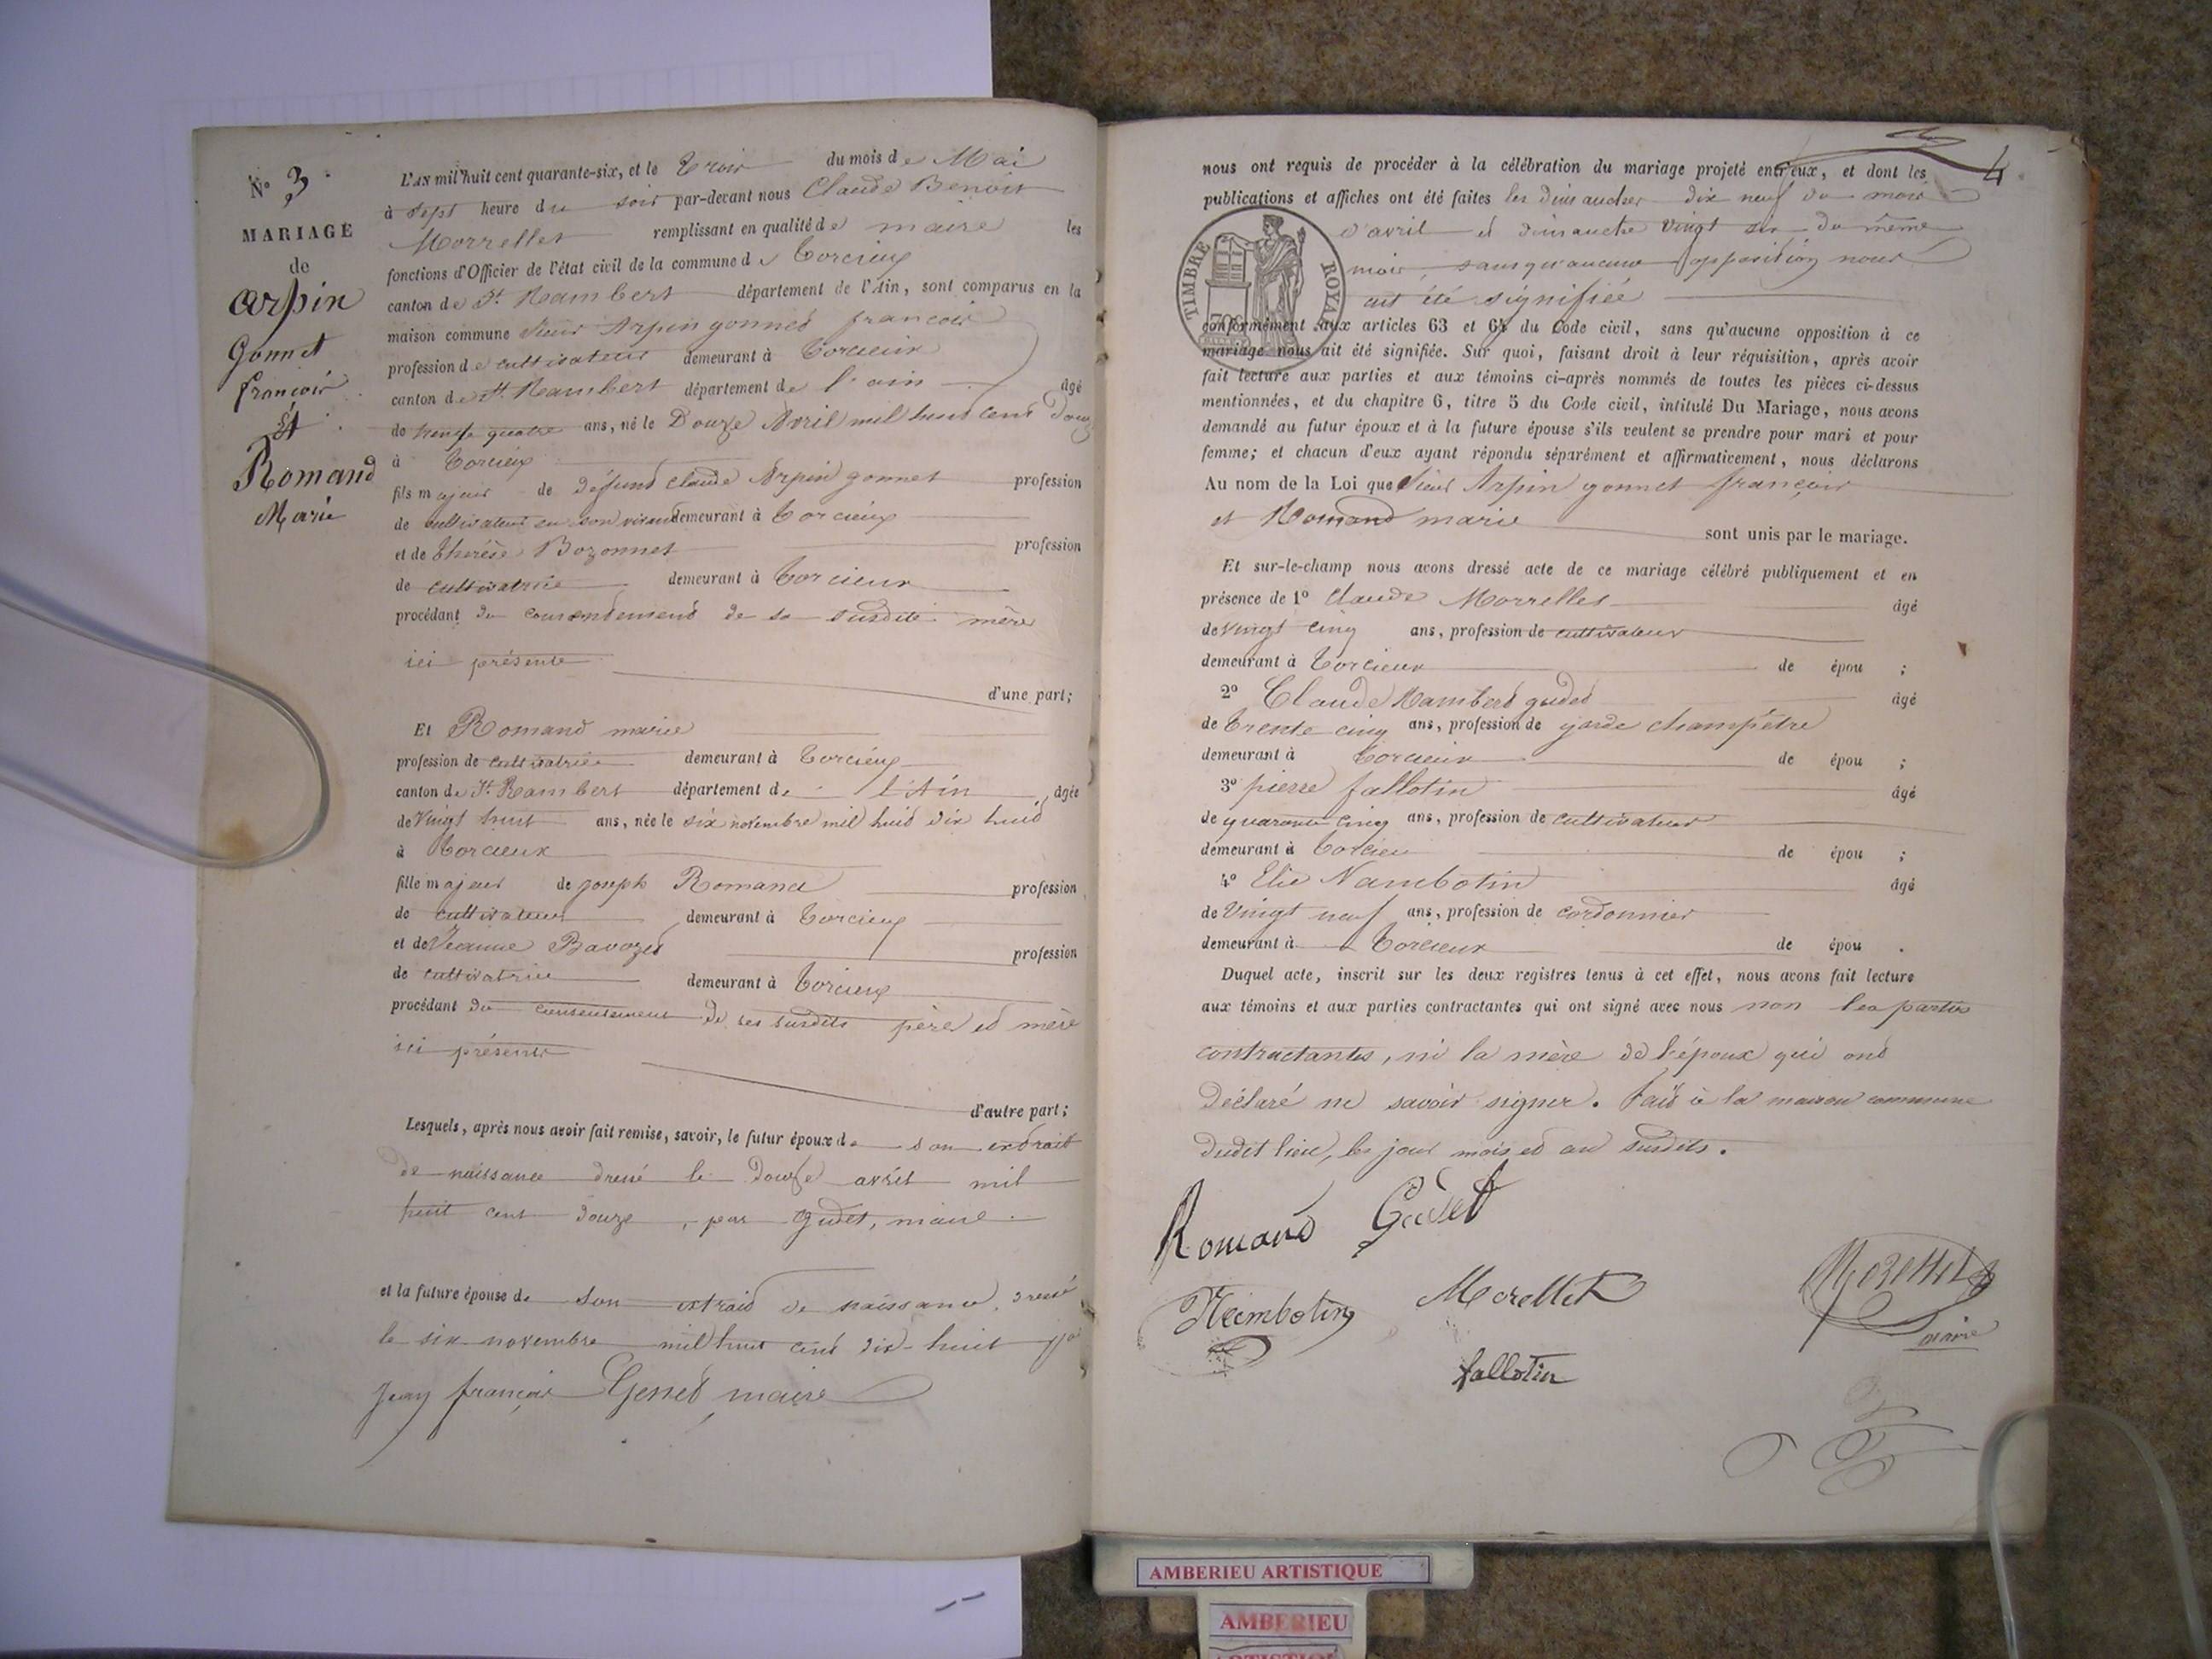 N° 3
MARIAGE
de
Arpin
Gonnet
françois
Et
Romand
Marie
L'AN mil huit cent quarante-six, et le Trois du mois de Mai
à sept heure du soir par-devant nous Claude Benoit
Morrellet remplissant en qualité de maire les
fonctions d'Officier de l'état civil de la commune de Torcieux
canton de St Rambert département de l'Ain, sont comparus en la
maison commune Sieur Arpin gonnet françois
profession de cultivateur demeurant à Torcieux
canton de St Rambert département de l'ain âgé
de trente quatre ans, né le Douze Avril mil huit cent Douze
à Torcieux
fils majeur de défunt Claude Arpin gonnet profession
de cultivateur en son vivant demeurant à Torcieux
et de Thérèse Bozonnet profession
de cultivatrice demeurant à Torcieux
procédant du consentement de sa susdite mère
ici présente
d'une part;
Et Romand marie
profession de cultivatrice demeurant à Torcieux
canton de St Rambert département de l'Ain, âgée
de Vingt huit ans, née le six novembre mil huit dix huit
à Torcieux
fille majeur de joseph Romand profession
de cultivateur demeurant à Torcieux
et de Jeanne Bavozet profession
de cultivatrice demeurant à Torcieux
procédant du consentement de ses susdits père et mère
ici présents
d'autre part;
Lesquels, après nous avoir fait remise, savoir, le futur époux de son extrait
de naissance dressé le Douze avril mil
huit cent douze, par Gudet, maire.
et la future épouse de son extrait de naissance, dressé
le six novembre mil huit cent dix-huit
Jean françois Genet maire
4
nous ont requis de procéder à la célébration du mariage projeté entr'eux, et dont les
publications et affiches ont été faites les dimanches dix neuf du mois
d'avril et dimanche vingt six du même
mois, sans qu'aucune opposition nous
ait été signifiée
TIMBRE ROYAL
conformément aux articles 63 et 64 du Code civil, sans qu'aucune opposition à ce
mariage nous ait été signifiée. Sur quoi, faisant droit à leur réquisition, après avoir
fait lecture aux parties et aux témoins ci-après nommés de toutes les pièces ci-dessus
mentionnées, et du chapitre 6, titre 5 du Code civil, intitulé Du Mariage, nous avons
demandé au futur époux et à la future épouse s'ils veulent se prendre pour mari et pour
femme; et chacun d'eux ayant répondu séparément et affirmativement, nous déclarons
Au nom de la Loi que Sieur Arpin gonnet françois
et Romand marie sont unis par le mariage.
Et sur-le-champ nous avons dressé acte de ce mariage célébré publiquement et en
présence de 1° Claude Morrellet âgé
de Vingt cinq ans, profession de cultivateur
demeurant à Torcieux de épou ;
2° Claude Rambert gudet âgé
de Trente cinq ans, profession de garde champêtre
demeurant à Torcieux de épou ;
3° pierre fallotin âgé
de quarante cinq ans, profession de cultivateur
demeurant à Torcieu de épou ;
4° Elie Nambotin âgé
de Vingt neuf ans, profession de cordonnier
demeurant à Torcieux de épou .
Duquel acte, inscrit sur les deux registres tenus à cet effet, nous avons fait lecture
aux témoins et aux parties contractantes qui ont signé avec nous non les parties
contractantes, ni la mère de l'époux qui ont
déclaré ne savoir signer. Fait à la maison commune
dudit lieu, les jour mois et an susdits.
Romand Gudet
Morellet
Nambotin Morellet
maire
fallotin
AMBERIEU ARTISTIQUE
AMBERIEU
ARTISTIQUE